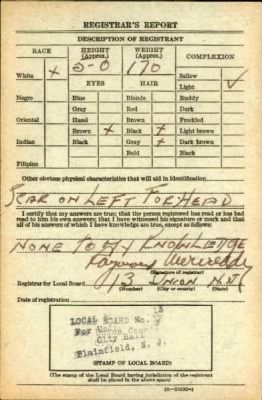 REGISTRAR'S REPORT
DESCRIPTION OF REGISTRANT
RACE HEIGHT (Approx.) WEIGHT (Approx.) COMPLEXION
5-0 170
White x Sallow
EYES HAIR Light ✓
Negro Blue Blonde Ruddy
Gray Red Dark
Oriental Hazel Brown Freckled
Brown x Black x Light brown
Indian Black Gray x Dark brown
Bald Black
Filipino
Other obvious physical characteristics that will aid in identification
SCAR ON LEFT FORHEAD
I certify that my answers are true; that the person registered has read or has had
read to him his own answers; that I have witnessed his signature or mark and that
all of his answers of which I have knowledge are true, except as follows:
NONE TO MY KNOWLEDGE
(Signature of registrar)
Registrar for Local Board 13 UNION N.J.
(Number) (City or county) (State)
Date of registration
LOCAL BOARD No. 13
For Union County
City Hall
Plainfield, N. J.
(STAMP OF LOCAL BOARD)
(The stamp of the Local Board having jurisdiction of the registrant
shall be placed in the above space.)